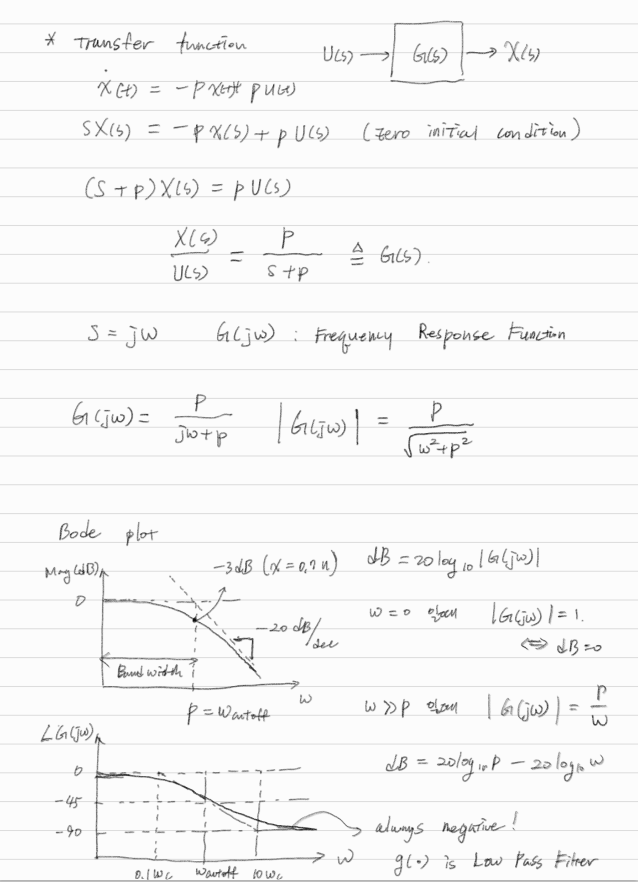 * Transfer function
U(s) → G(s) → X(s)
ẋ(t) = -p x(t) + p u(t)
sX(s) = -p X(s) + p U(s) (Zero initial condition)
(s + p) X(s) = p U(s)
X(s)/U(s) = p/(s+p) ≜ G(s).
s = jω G(jω) : Frequency Response Function
G(jω) = p/(jω+p) |G(jω)| = p/√(ω²+p²)
Bode plot
Mag(dB)
0
-3dB (x = 0.7u)
-20 dB/dec
Bandwidth
ω
p = ωcutoff
dB = 20 log₁₀ |G(jω)|
ω = 0 |G(jω)| = 1.
⇔ dB = 0
ω ≫ p |G(jω)| = p/ω
dB = 20 log₁₀ p - 20 log₁₀ ω
∠G(jω)
0
-45
-90
0.1ωc ωcutoff 10ωc
ω
always negative!
g(·) is Low Pass Filter